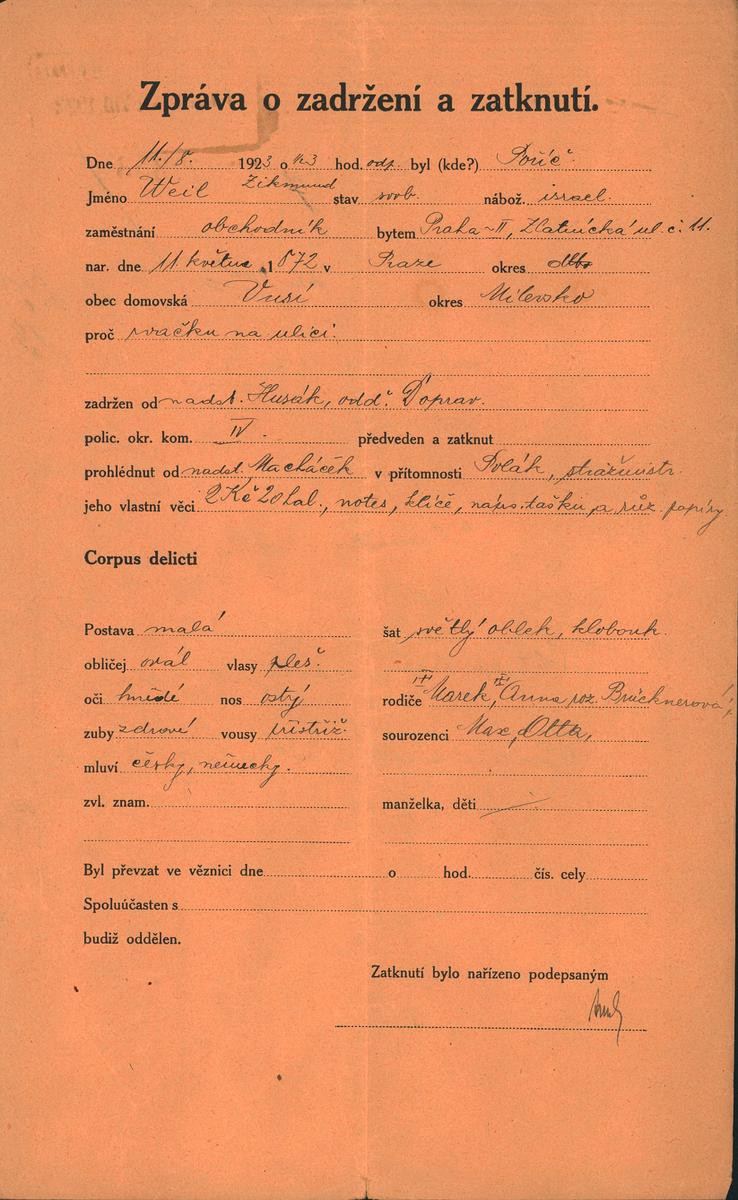 Zpráva o zadržení a zatknutí.
Dne 11./8. 1923 o hod. odp. byl (kde?) Poříč
Jméno Weil Zikmund stav svob. nábož. israel.
zaměstnání obchodník bytem Praha-II, Zlatnická ul. č. 11.
nar. dne 11 května 1872 v Praze okres
obec domovská okres Milevsko
proč rvačku na ulici.
zadržen od nadst. Husák, odd. Doprav.
polic. okr. kom. IV. předveden a zatknut
prohlédnut od nadst. Macháček v přítomnosti Polák, strážmistr.
jeho vlastní věci 2 Kč 20 hal., notes, klíče, nápr. tašku, a růz. papíry
Corpus delicti
Postava malá šat světlý oblek, klobouk.
obličej ovál vlasy pleš.
oči hnědé nos ostrý rodiče Marek, Anna roz. Brücknerová,
zuby zdravé vousy přistřiž. sourozenci Max, Otta,
mluví česky, německy.
zvl. znam. manželka, děti
Byl převzat ve věznici dne o hod. čís. cely
Spoluúčasten s
budiž oddělen.
Zatknutí bylo nařízeno podepsaným